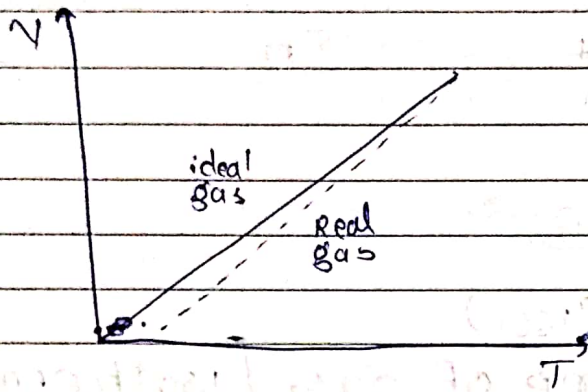 V
ideal
gas
Real
gas
T